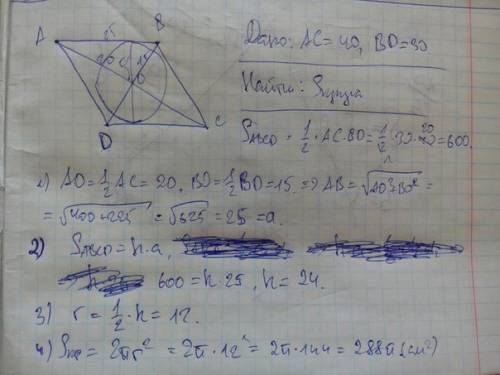 A 25 B
20 15
O
D C
Дано: AC = 40, BD = 30
Найти: Sкруга
SABCD = 1/2 · AC · BD = 1/2 · 30 · 40 = 600.
20
1) AO = 1/2 AC = 20, BO = 1/2 BD = 15. => AB = √AO²+BO² =
= √400+225 = √625 = 25 = a.
2) SABCD = h·a,
600 = h · 25, h = 24.
3) r = 1/2 · h = 12.
4) Sкр = 2πr² = 2π · 12² = 2π · 144 = 288π (см²)